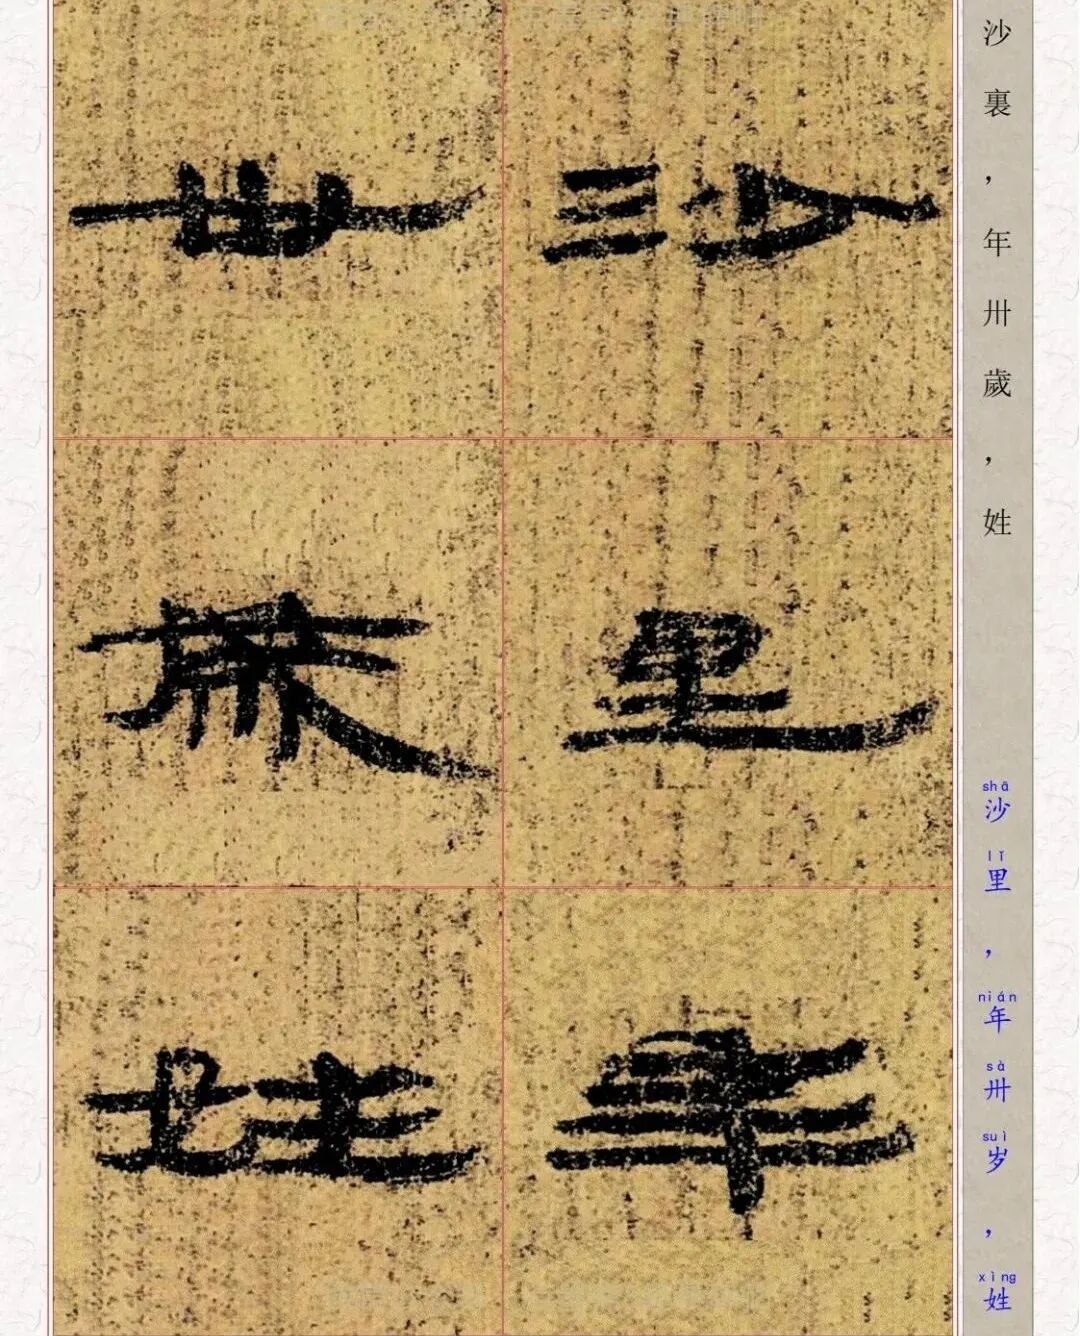 沙里年
卅歲姓
沙裏，年卅歲，姓
shā lǐ nián sà suì xìng
沙里，年卅岁，姓